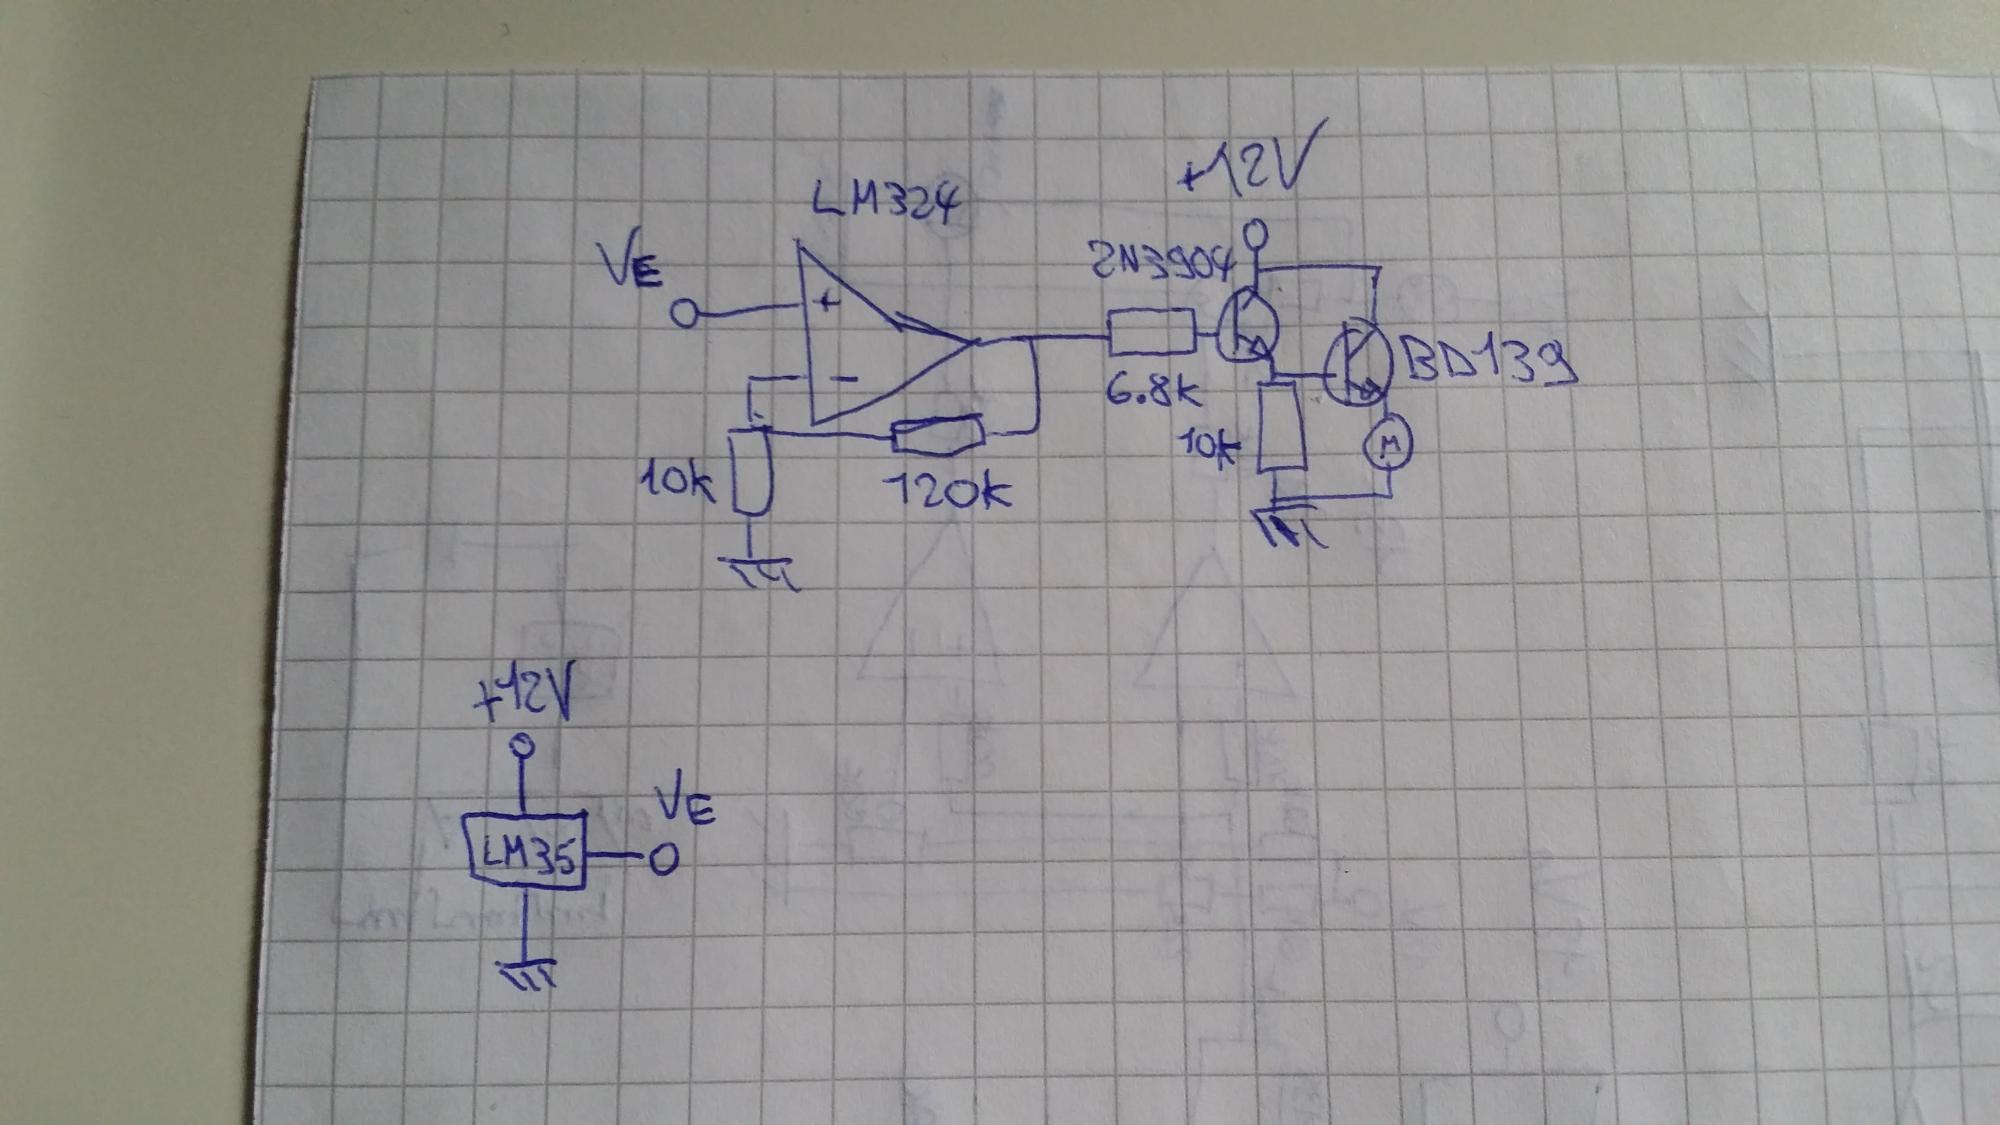 LM324
+12V
VE
2N3904
+
-
BD139
6.8k
10k
M
10k
120k
+12V
VE
LM35